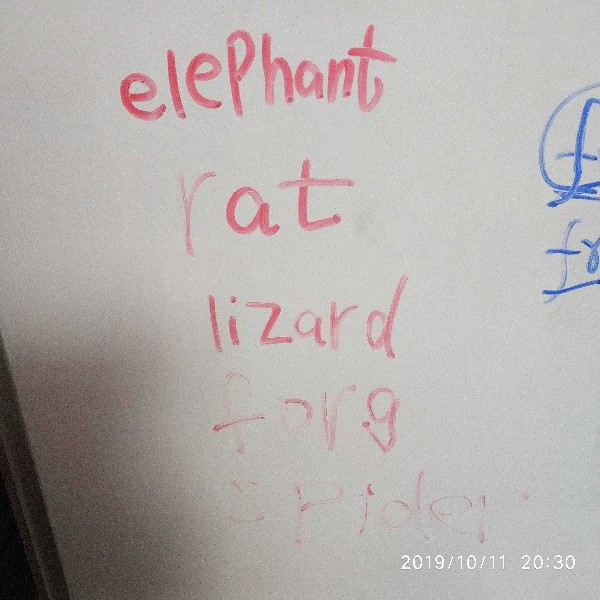 elephant
rat
lizard
forg
spider
2019/10/11 20:30